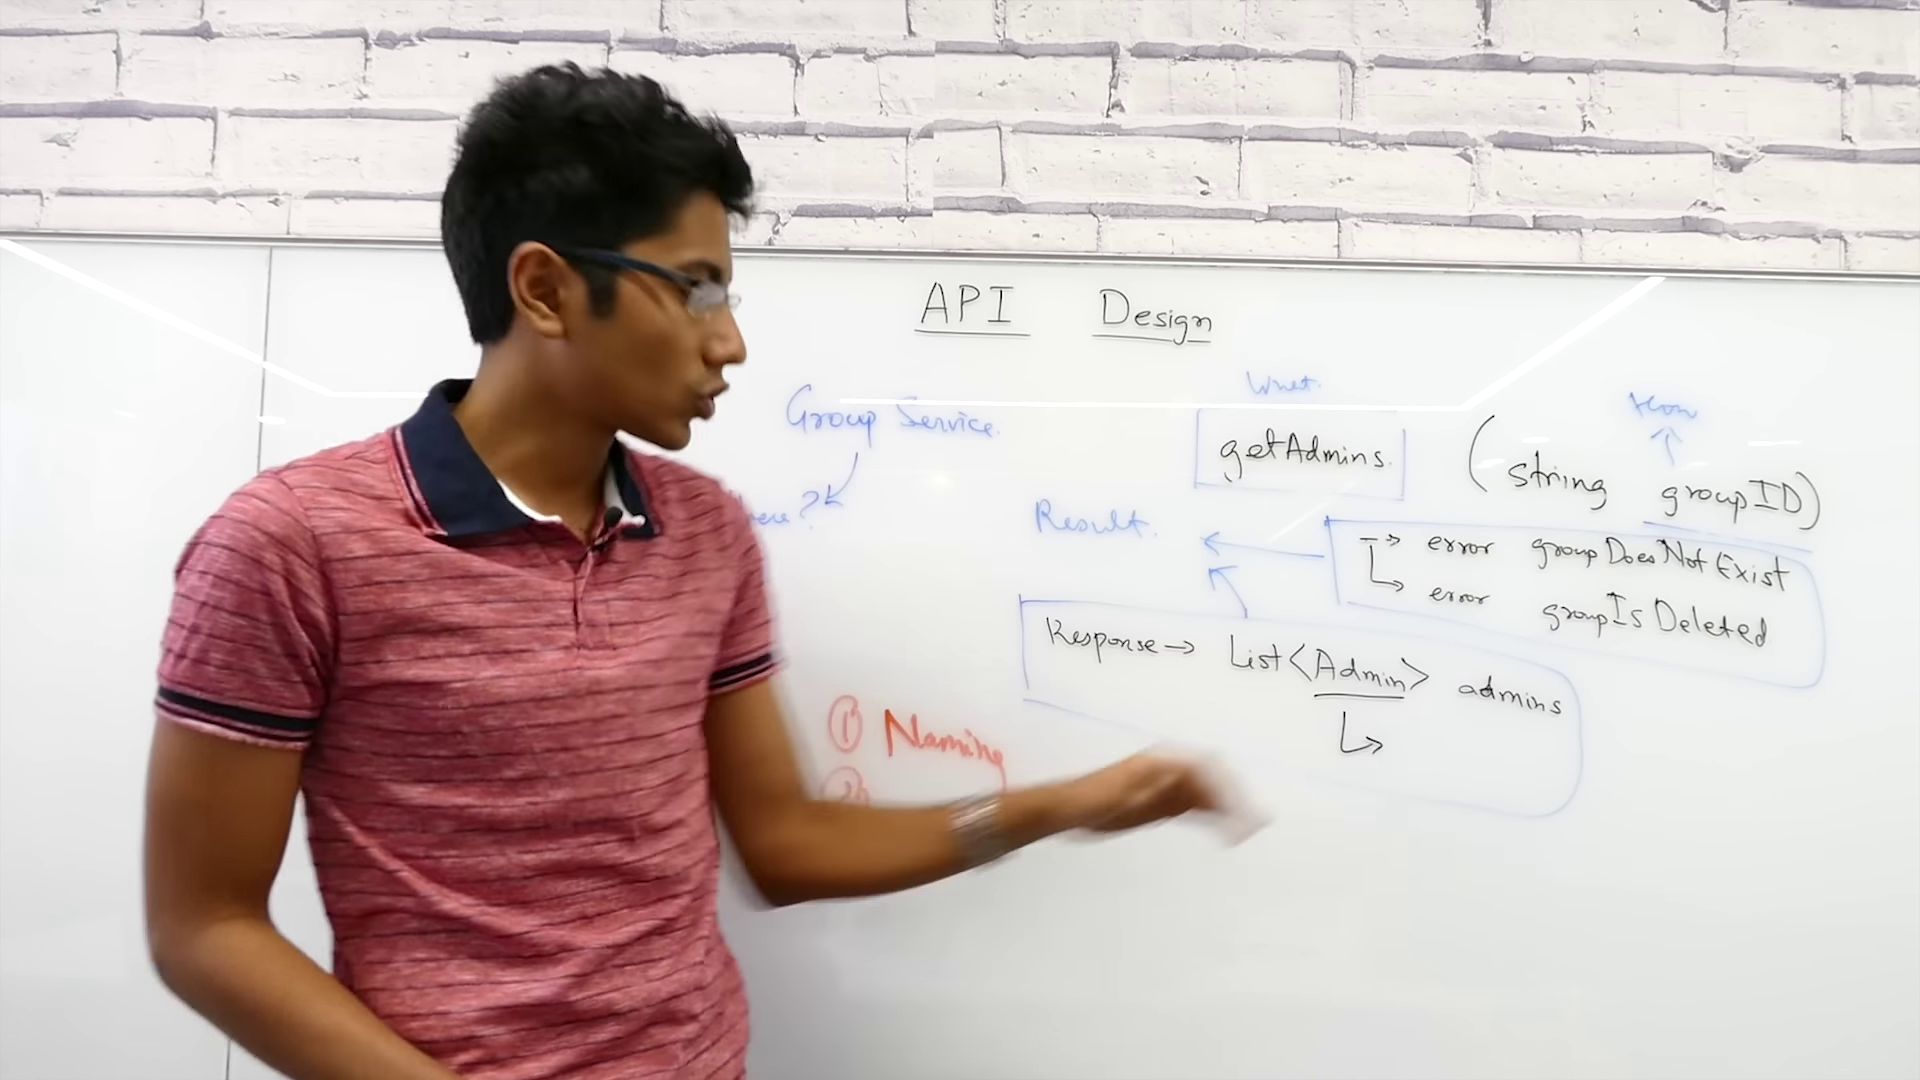 API Design
What.
How
Group Service.
getAdmins.
( string groupID)
Result.
→ error groupDoesNotExist
↳ error groupIsDeleted
Response → List<Admin> admins
↳
① Naming
②